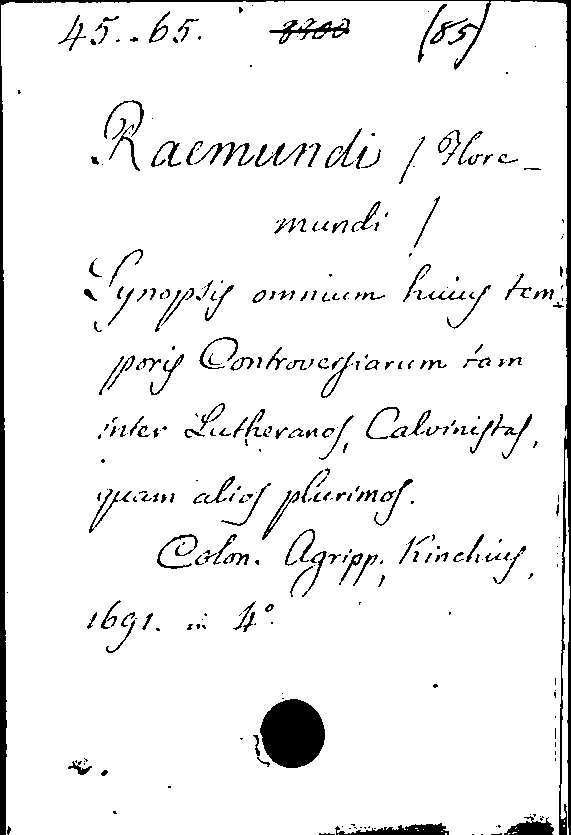 45..65. 8900 (85)
Raemundi / Flore-
mundi /
Synopsis omnium huius tem-
poris Controversiarum tam
inter Lutheranos, Calvinistas,
quam alios plurimos.
Colon. Agripp., Kinchius,
1691. in 4°.